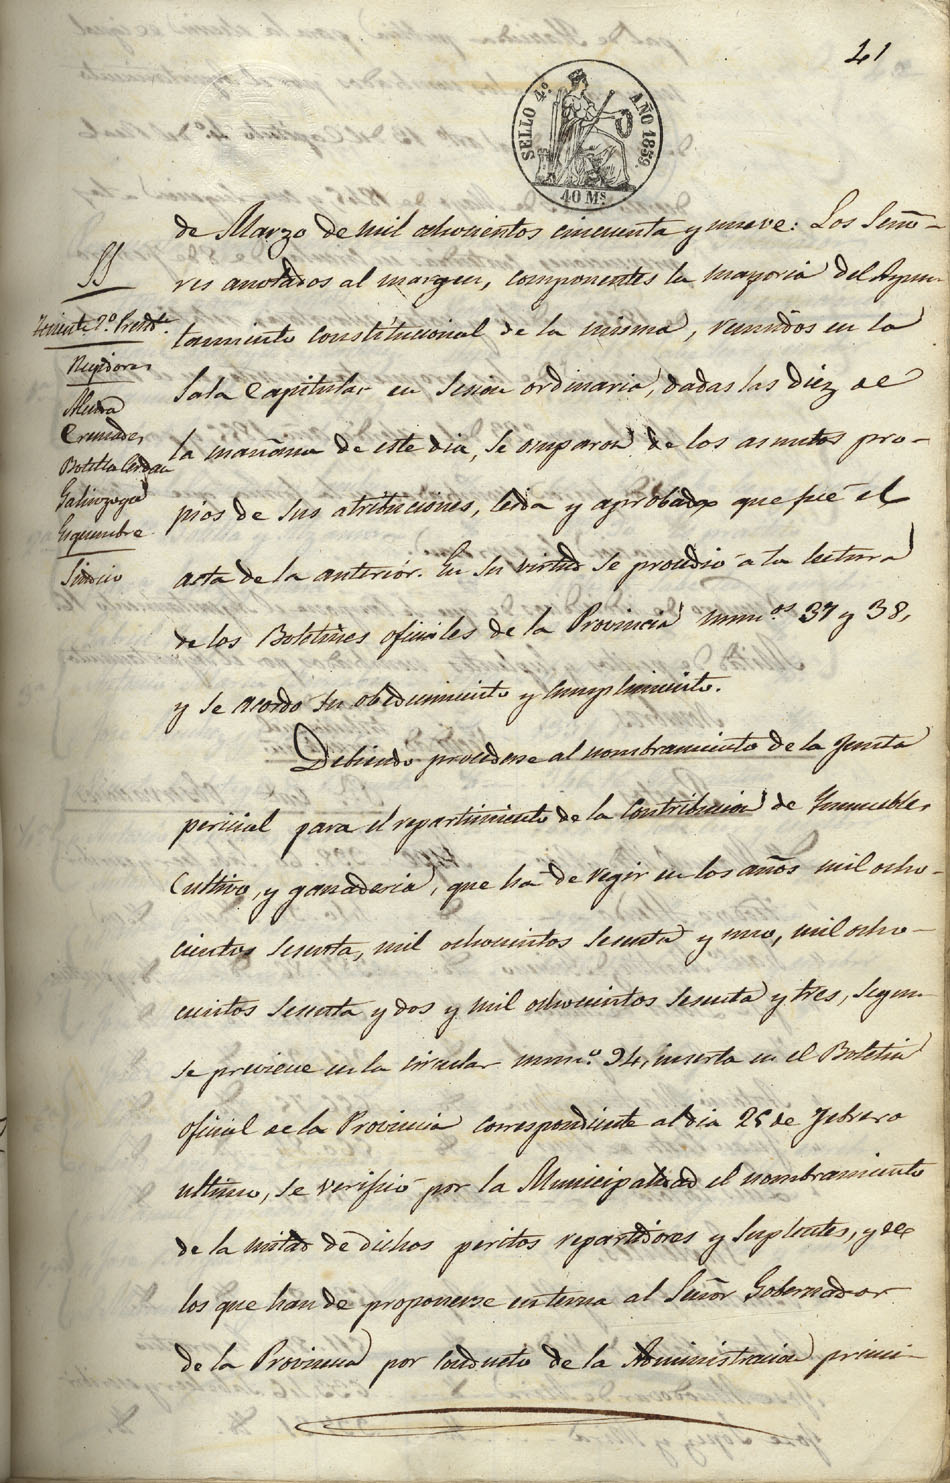 41
SELLO 4º AÑO 1859.
40 Ms.
de Marzo de mil ochocientos cincuenta y nueve: Los Seño-
res anotados al margen, componentes la mayoria del Ayun-
tamiento constitucional de la misma, reunidos en la
Sala Capitular en Sesion ordinaria, dadas las diez de
la mañana de este dia, se ocuparon de los asuntos pro-
pios de sus atribuciones, leida y aprobada que fué el
acta de la anterior. En su virtud se procedió á la lectura
de los Boletines oficiales de la Provincia numos 37 y 38,
y se acordo su obedecimiento y cumplimiento.
SS
Teniente 2º Presdte.
Regidores
Mira
Cremades
Botella Cerdan
Galinzoga
Esquembre
Sindico
Debiendo procederse al nombramiento de la Junta
pericial para el repartimiento de la Contribucion de Inmuebles
Cultivo, y ganaderia, que ha de regir en los años mil ocho-
cientos sesenta, mil ochocientos sesenta y uno, mil ocho-
cientos sesenta y dos y mil ochocientos sesenta y tres, segun
se previene en la circular numº 94, inserta en el Boletin
oficial de la Provincia correspondiente al dia 25 de Febrero
ultimo, se verificó por la Municipalidad el nombramiento
de la mitad de dichos peritos repartidores y suplentes, y de
los que han de proponerse en terna al Señor Gobernador
de la Provincia por conducto de la Administracion princi-